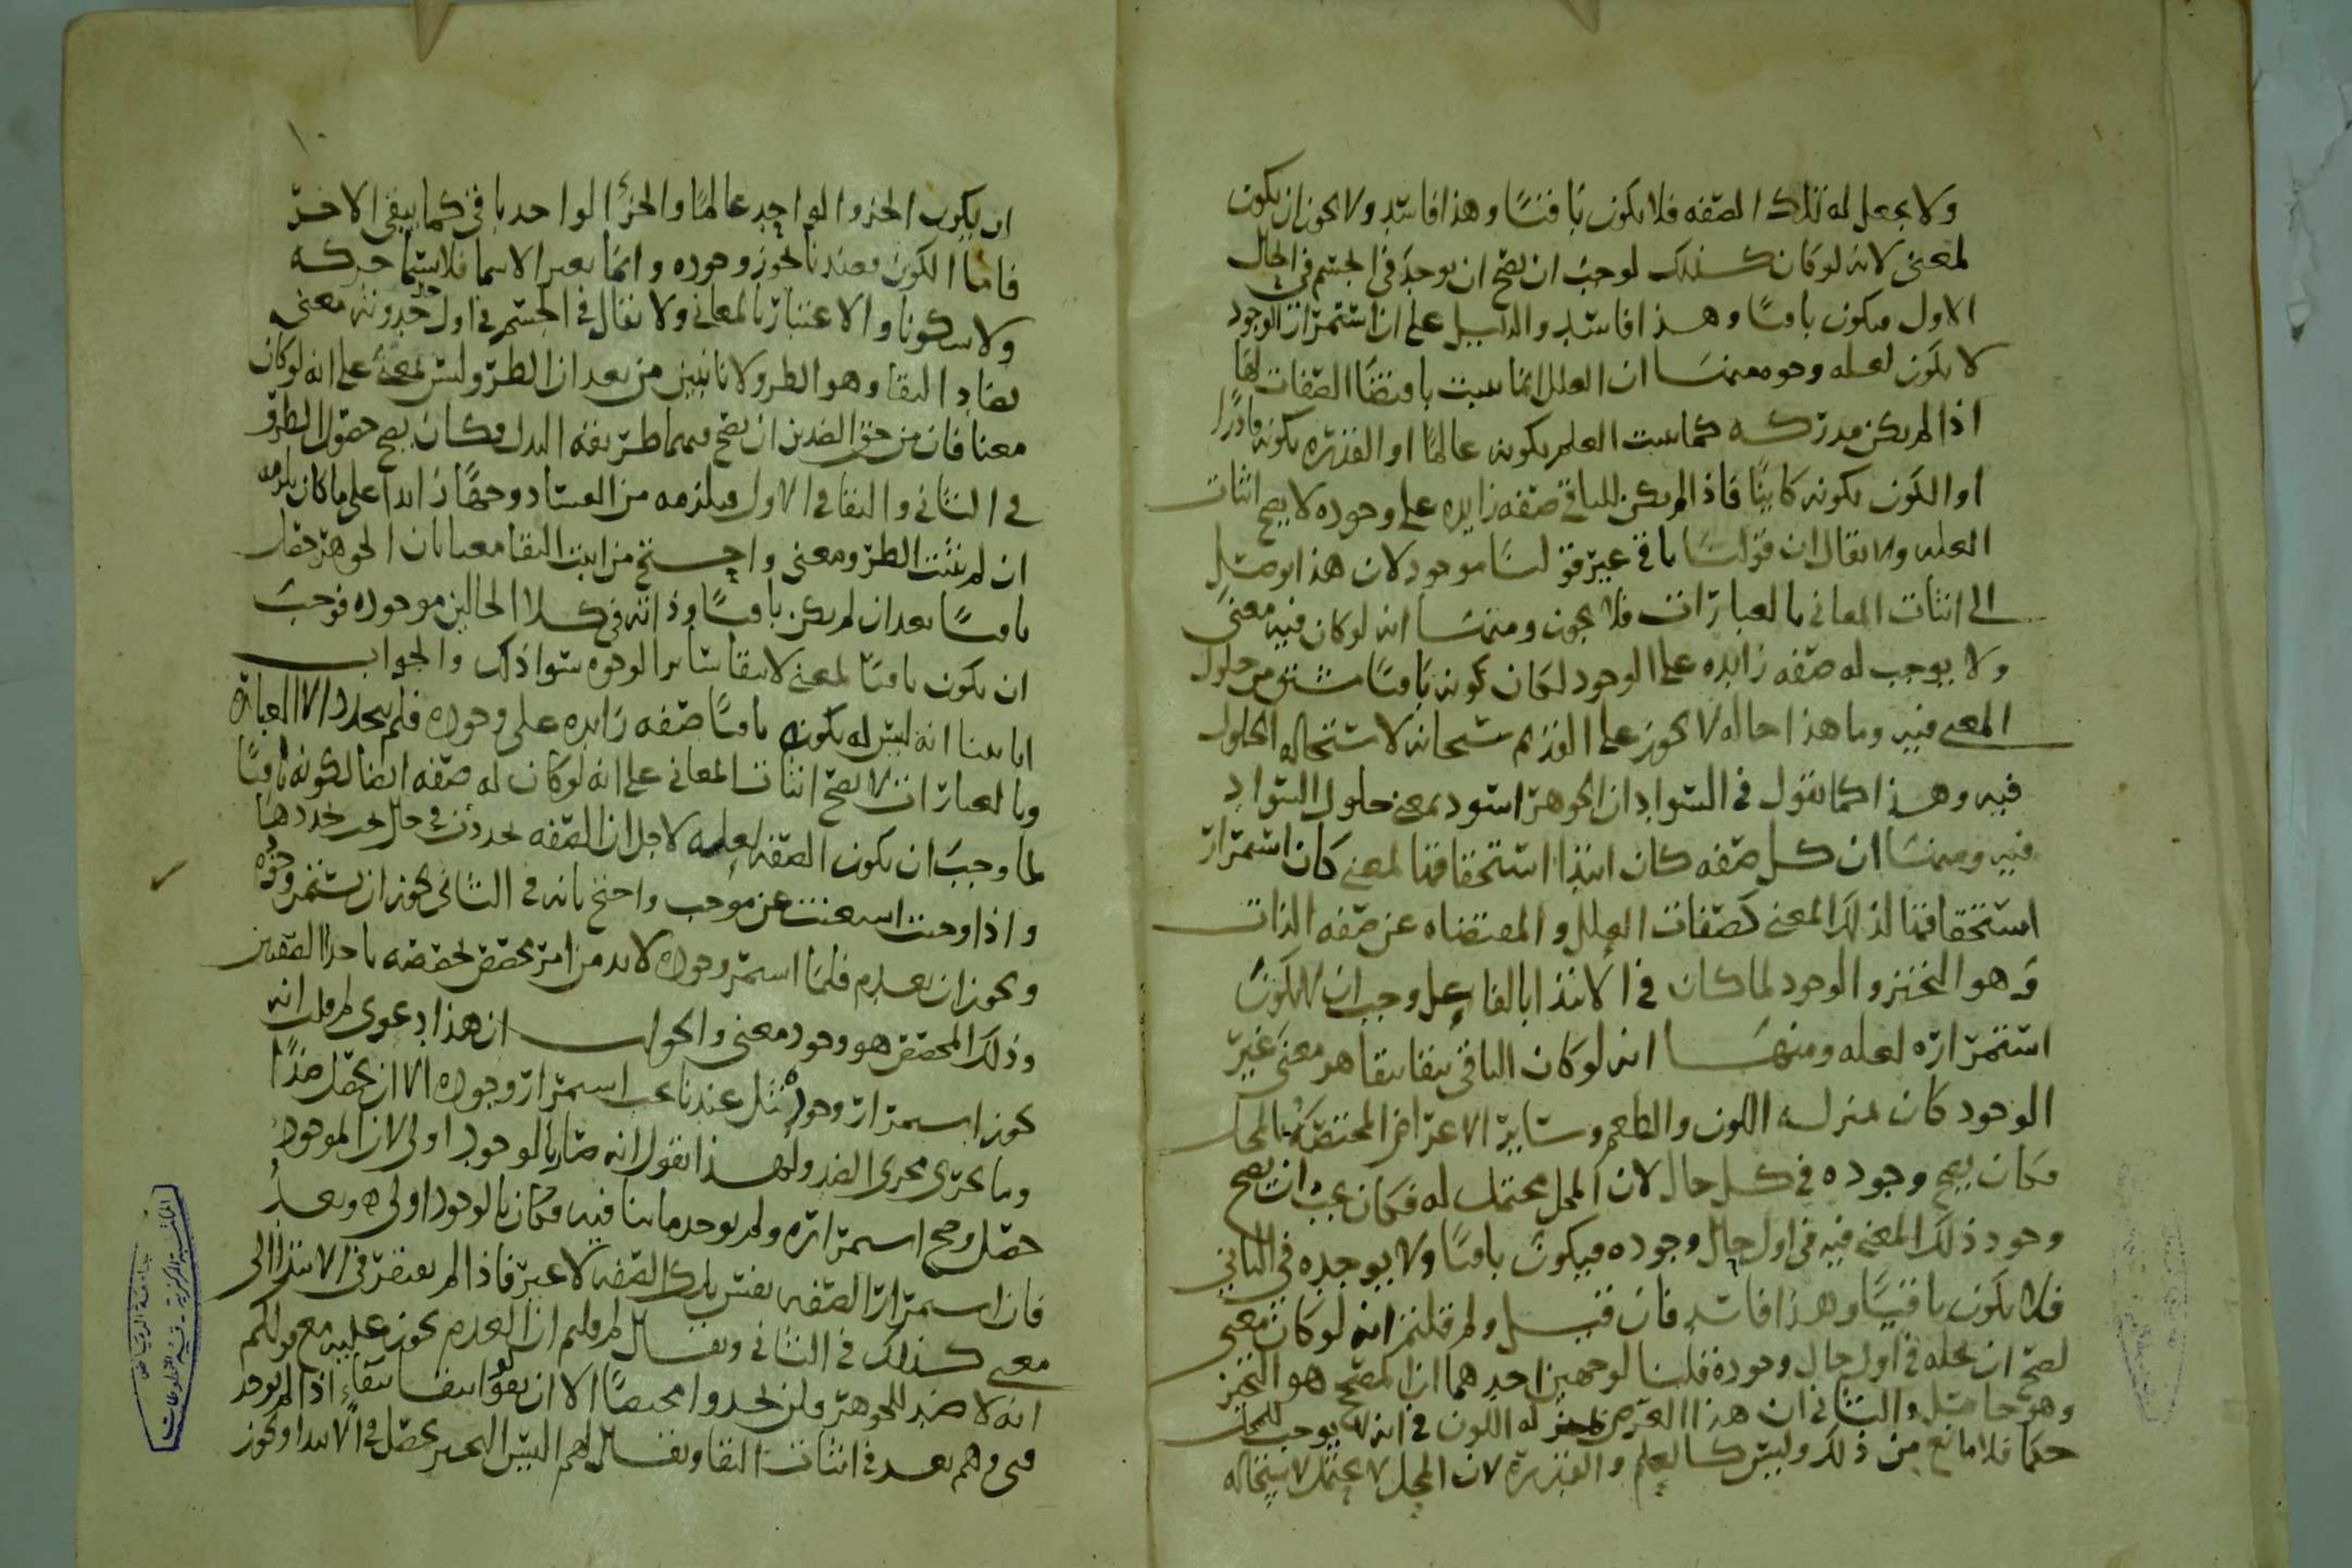 ولا يجعل له تلك الصفه فلا يكون باقيًا وهذا فاسد ولا يجوز ان يكون
لمعنى لانه لو كان كذلك لوجب ان يصح ان يوجد في الجسم في الحال
الاول فيكون باقيًا وهذا فاسد والدليل على ان استمرار الوجود
لا يكون لعله وجوه منها ان العلل انما تثبت باقتضا الصفات لها
اذا لم يكن مدركه كما يثبت العلم بكونه عالمًا او القدره بكونه قادرًا
او الكون بكونه كاينًا فاذا لم يكن للباقي صفه زايده على وجوده لا يصح اثبات
العله ولا يقال ان قولنا باقي غير قولنا موجود لان هذا توصل
الى اثبات المعاني بالعبارات فلا يجوز ومنها انه لو كان فيه معنى
ولا يوجب له صفه زايده على الوجود لكان كونه باقيًا مشتق من حلول
المعنى فيه وما هذا حاله لا يجوز على القديم سبحانه لاستحاله الحلول
فيه وهذا كما نقول في السواد ان الجوهر اسود بمعنى حلول السواد
فيه ومنها ان كل صفه كان ابتدا استحقاقها لمعنى كان استمرار
استحقاقها لذلك المعنى كصفات العلل والمقتضاه عن صفه الذات
وهو التحيز والوجود لما كان في الابتدا بالفاعل وجب ان لا يكون
استمراره لعله ومنها انه لو كان الباقي يبقا ببقا هو معنى غير
الوجود كان بمنزله اللون والطعم وساير الاعراض المختصه بالمحل
فكان يصح وجوده في كل حال لان المحل محتمل له فكان يجب ان يصح
وجود ذلك المعنى فيه في اول حال وجوده فيكون باقيًا ولا يوجده في الثاني
فلا يكون باقيًا وهذا فاسد فان قيل ولم قلتم انه لو كان معنى
لصح ان يحله في اول حال وجوده قلنا لوجهين احدهما ان المصحح هو التحيز
وهو حاصل والثاني ان هذا العرض له اللون في انه لا يوجب للمحل
حكما فلا مانع من ذلك وليس كالعلم والقدره لان المحل لا يحتمل لاستحاله
ان يكون الجزو الواحد عالمًا والجزا الواحد باقي كما يبقى الاخر
فاما الكون فعندنا يجوز وجوده وانما يغير الاسما فلا يسما حركه
ولا سكونا والاعتبار بالمعاني ولا يقال في الجسم في اول حدوثه معنى
يضاد البقا وهو الطرو لانا نبين من بعد ان الطرو ليس لمعنى على انه لو كان
معنا فان من حق الضدين ان يصح فيهما طريقه البدل فكان يصح حصول الطرو
في الثاني والبقا في الاول فيلزمه من الفساد وجهًا زايدا على ما كان يلزمه
ان لم يثبت الطرو معنى واحتج من اثبت البقا معنا بان الجوهر حصل
باقيًا بعد ان لم يكن باقيًا وذاته في كلا الحالين موجوده فوجب
ان يكون باقيًا لمعنى لانتقا ساير الوجوه سوا ذلك والجواب
انا بينا انه ليس له بكونه باقيًا صفه زايده على وجوده فلم يتجدد الا العباره
وبالعبارات لا يصح اثبات المعاني على انه لو كان له صفه ايضا لكونه باقيًا
لما وجب ان يكون الصفه لعله لاجل ان الصفه تجددت في حال تجددها
واذا وجبت استغنت عن موجب واحتج بانه في الثاني يجوز ان يستمر وجوده
ويجوز ان يعدم فلما استمر وجوده لا بد من امر مخصص تخصصه باحدا الصفتين
وذلك المخصص هو وجود معنى والجواب ان هذا دعوى لم قلت انه
يجوز استمرار وجوده بل عندنا يجب استمرار وجوده الا ان يحصل ضدًا
وما يجري مجرى الضد ولهذا نقول انه صار بالوجود اولى لان الموجود
حصل وصح استمراره ولم يوجد ما ينافيه فكان بالوجود اولى ه وبعد
فان استمرار الصفه نفس تلك الصفه لا غير فاذا لم يفتقر في الابتدا الى
معنى كذلك في الثاني ويقال لم قلتم ان العدم يجوز عليه مع قولكم
انه لا ضد للجوهر ولن تجدوا مخصصًا الا ان يقولوا انتفا بقاء اذا لم يوجد
فيه وهم بعد في اثبات البقا ويقال لهم اليس التحيز يحصل في الابتدا ويجوز
جامعة الرياض
المكتبة المركزية - قسم المخطوطات